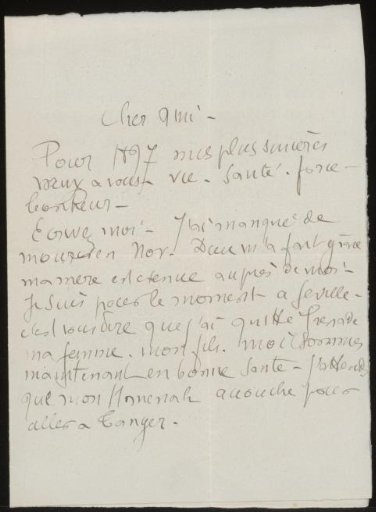 cher ami -
Pour 1897 mes plus sincères
vœux a vous - vie - Santé. force -
bonheur -
Ecrivez moi - J'ai manqué de
mourir en Nov. Dieu m'a fait grâce
ma mère est venue auprès de moi -
Je suis pour le moment a Seville -
c'est vous dire que j'ai quitté
ma femme. mon fils. moi Sommes
maintenant en bonne Santé - J'attends
que mon accouche pour
aller a Tanger.